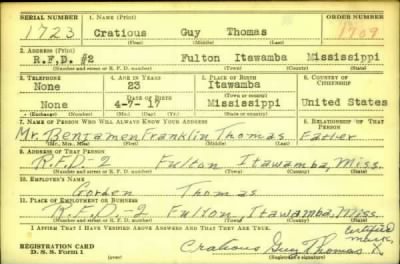 SERIAL NUMBER 1. NAME (Print) ORDER NUMBER
1723 Cratious Guy Thomas 1709
(First) (Middle) (Last)
2. ADDRESS (Print)
R.F.D. #2 Fulton Itawamba Mississippi
(Number and street or R. F. D. number) (Town) (County) (State)
3. TELEPHONE 4. AGE IN YEARS 5. PLACE OF BIRTH 6. COUNTRY OF CITIZENSHIP
None 23 Itawamba
(Town or county)
DATE OF BIRTH
None 4-7-17 Mississippi United States
(Exchange) (Number) (Mo.) (Day) (Yr.) (State or country)
7. NAME OF PERSON WHO WILL ALWAYS KNOW YOUR ADDRESS 8. RELATIONSHIP OF THAT PERSON
Mr. Benjamen Franklin Thomas Father
(Mr., Mrs., Miss) (First) (Middle) (Last)
9. ADDRESS OF THAT PERSON
R.F.D-2 Fulton Itawamba, Miss.
(Number and street or R. F. D. number) (Town) (County) (State)
10. EMPLOYER'S NAME
Gorden Thomas
11. PLACE OF EMPLOYMENT OR BUSINESS
R.F.D-2 Fulton, Itawamba, Miss.
(Number and street or R. F. D. number) (Town) (County) (State)
I AFFIRM THAT I HAVE VERIFIED ABOVE ANSWERS AND THAT THEY ARE TRUE.
certified mark
REGISTRATION CARD
D. S. S. Form 1
Cratious Guy Thomas
(Registrant's signature)